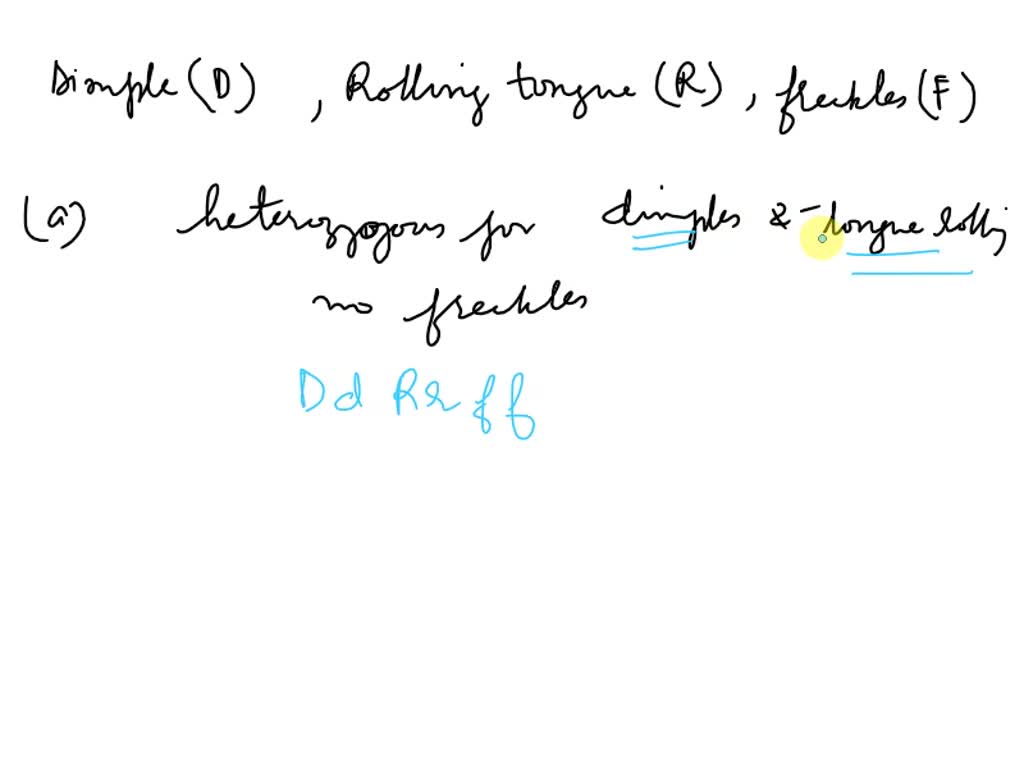 Dimple (D) , Rolling tongue (R) , freckles (F)
(a) heterozygous for dimples & tongue rolling
no freckles
Dd Rr ff